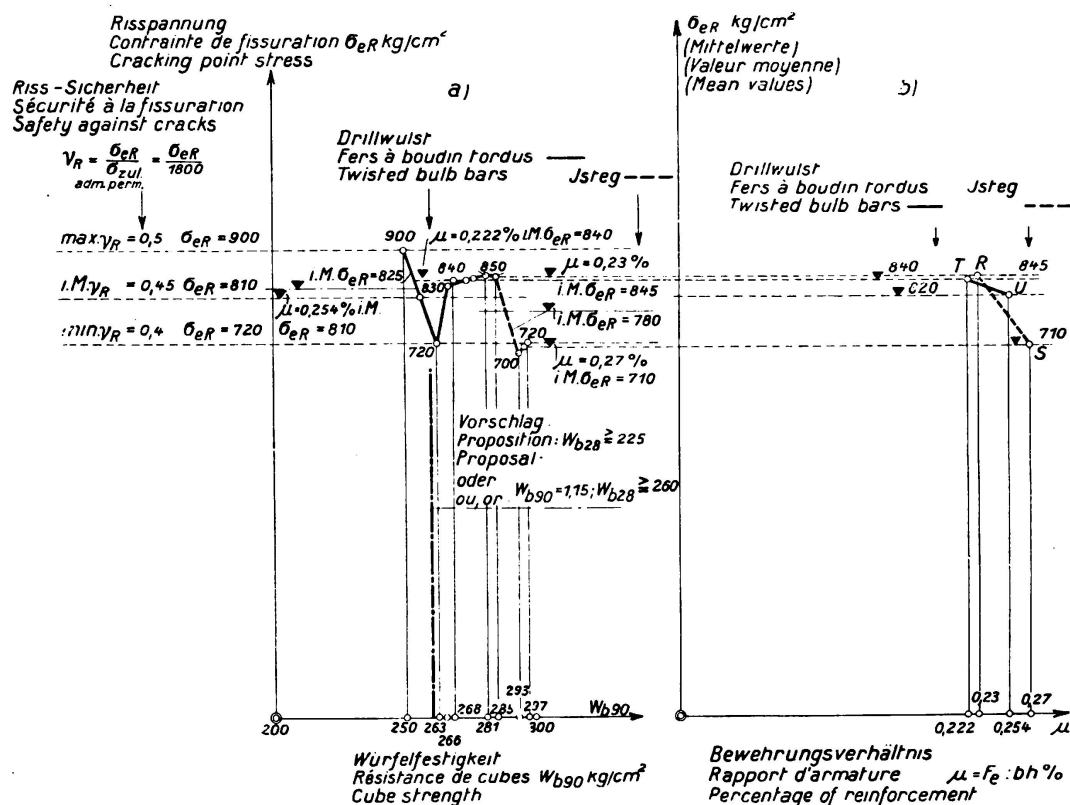 Risspannung
Contrainte de fissuration σeR kg/cm²
Cracking point stress
Riss-Sicherheit
Sécurité à la fissuration
Safety against cracks
νR = σeR / σzul. = σeR / 1800
adm. perm.
a)
Drillwulst
Fers à boudin tordus
Twisted bulb bars
Jsteg
max.νR = 0,5 σeR = 900
i.M.νR = 0,45 σeR = 810
min.νR = 0,4 σeR = 720 σeR = 810
900
μ = 0,222% i.M.σeR = 840
i.M.σeR = 825
μ = 0,254% i.M.
830
840
850
720
700
720
μ = 0,23%
i.M.σeR = 845
i.M.σeR = 780
μ = 0,27%
i.M.σeR = 710
Vorschlag
Proposition: Wb28 ≧ 225
Proposal
oder
ou, or Wb90 = 1,15; Wb28 ≧ 260
200
250
263
266
268
281
285
293
297
300
Wb90
Würfelfestigkeit
Résistance de cubes Wb90 kg/cm²
Cube strength
σeR kg/cm²
(Mittelwerte)
(Valeur moyenne)
(Mean values)
b)
Drillwulst
Fers à boudin tordus
Twisted bulb bars
Jsteg
840
T
R
845
U
710
S
0,222
0,23
0,254
0,27
μ
Bewehrungsverhältnis
Rapport d'armature μ = Fe : bh %
Percentage of reinforcement